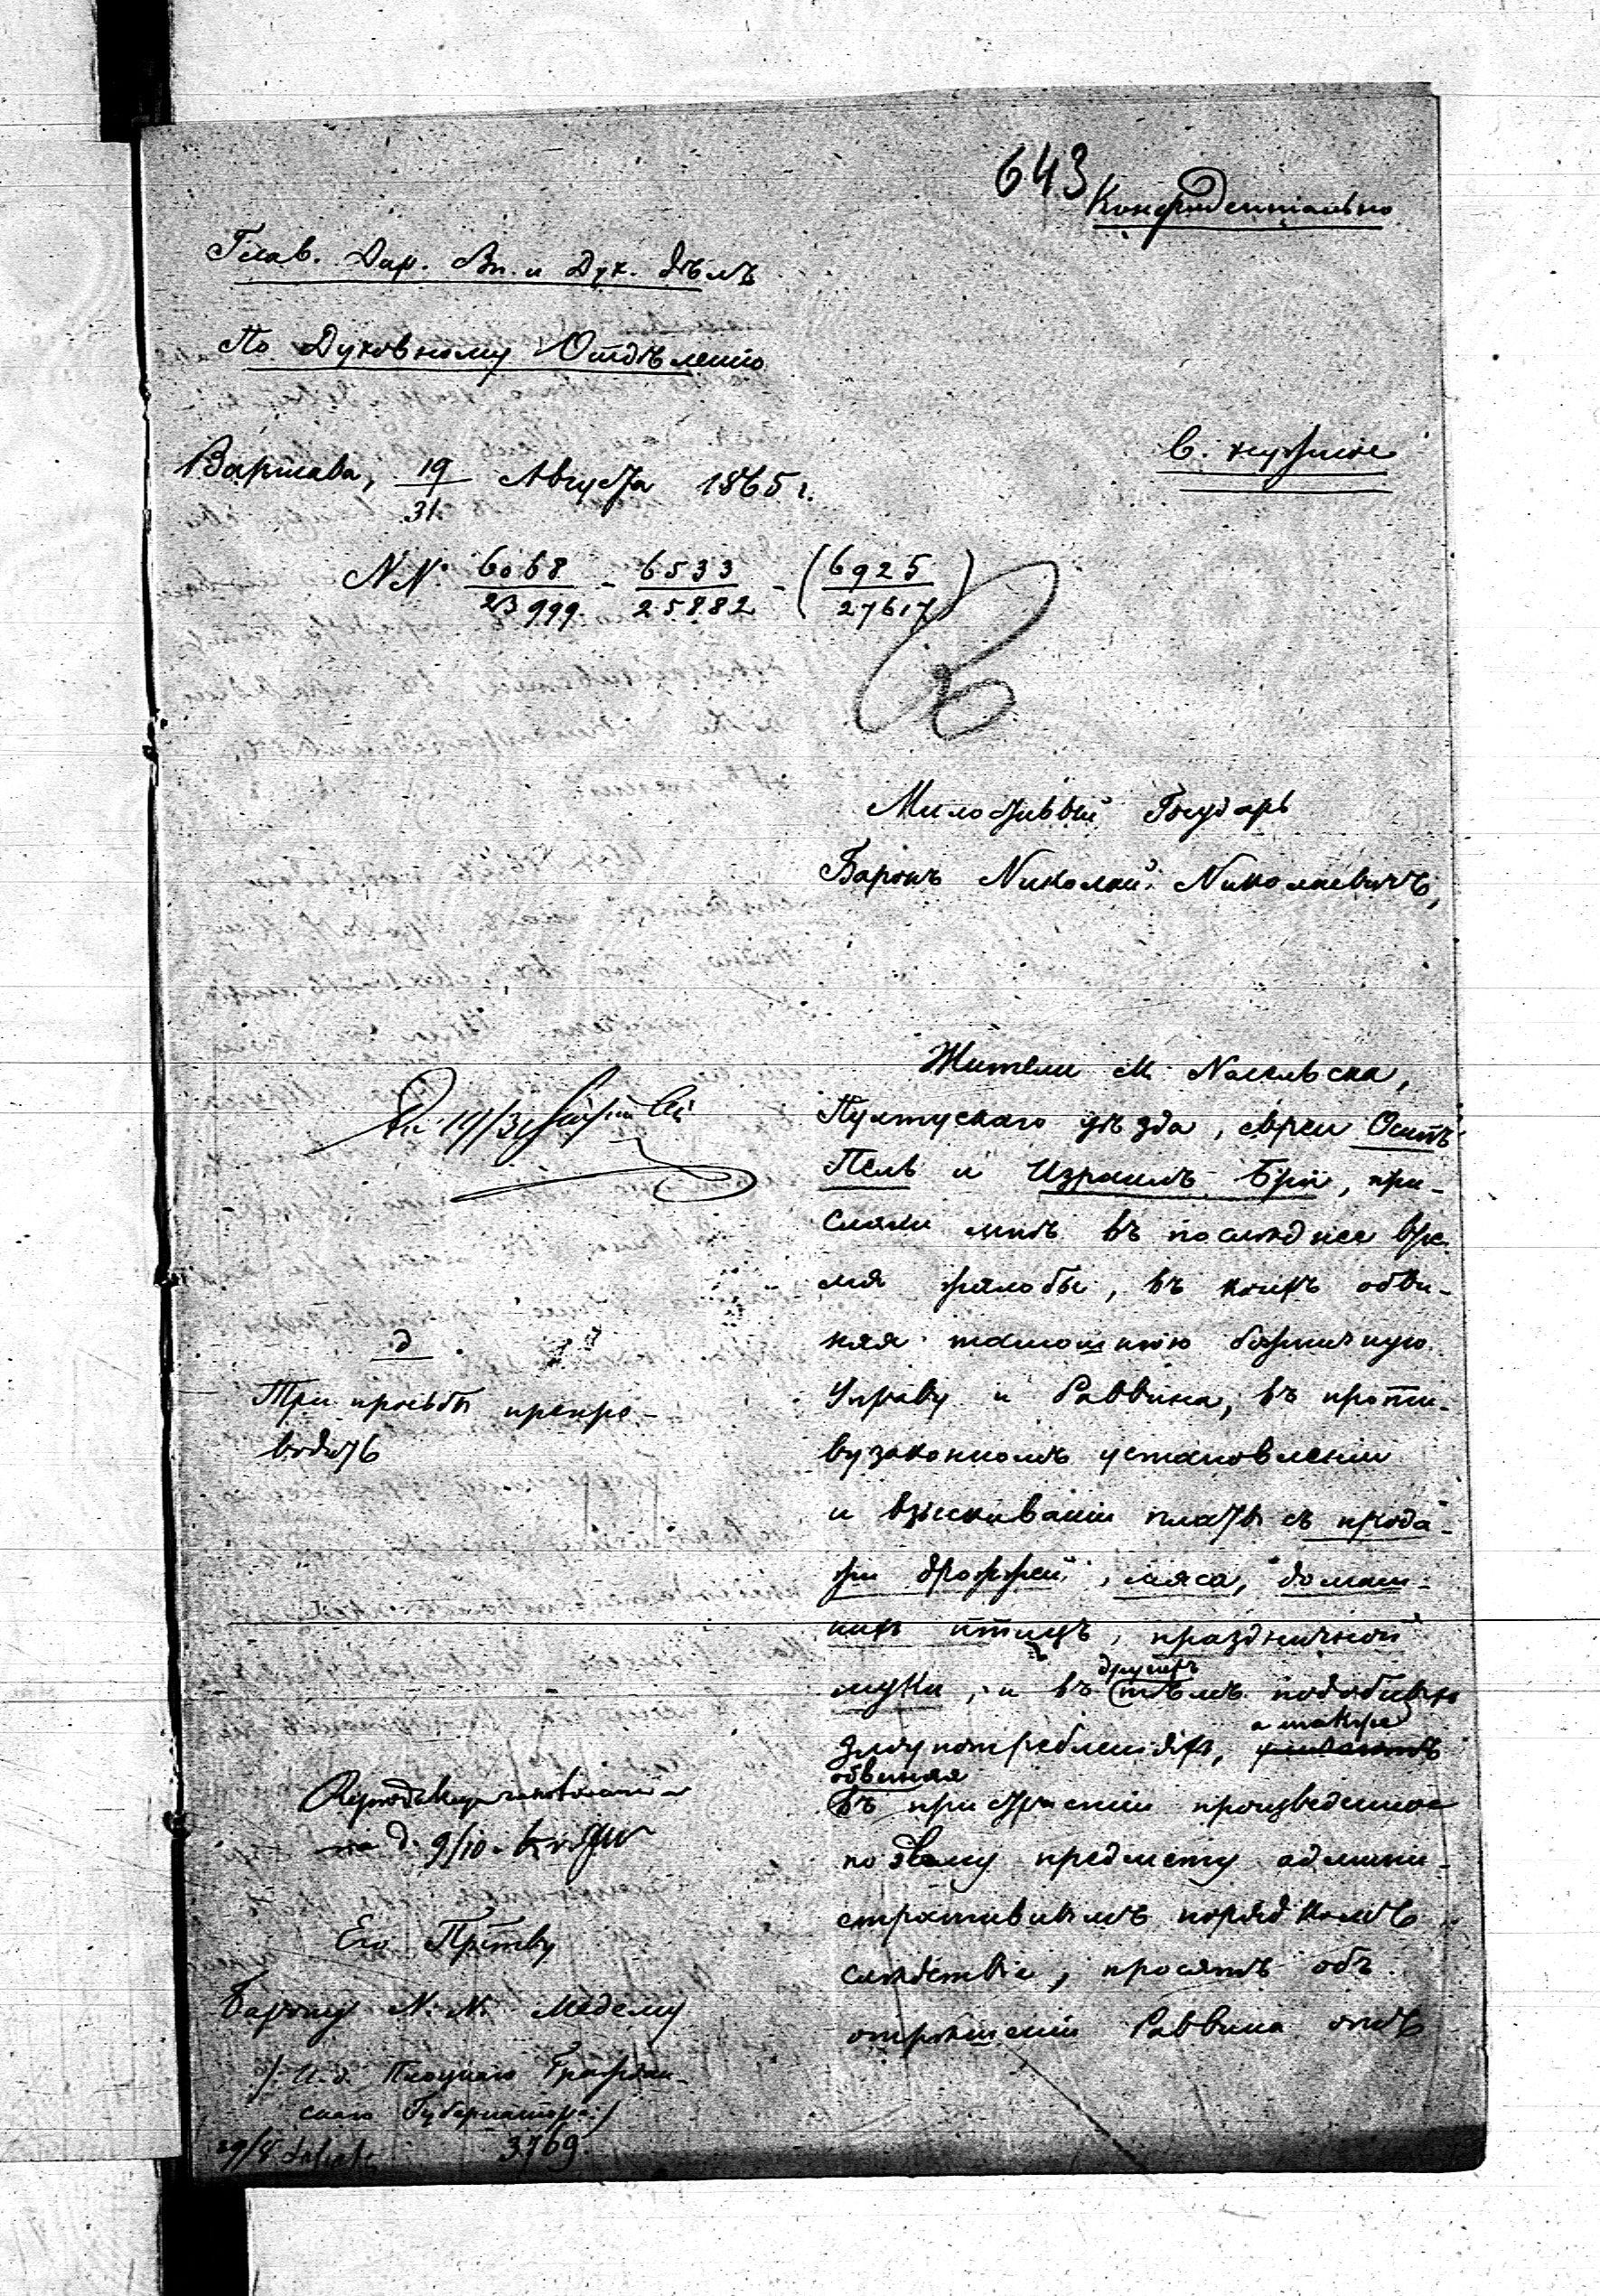 643
Конфиденціально
Глав. Дир. Вн. и Дух. дѣлъ
По Духовному Отдѣленію
Варшава, 19/31 Августа 1865 г.
В. нужное
NN. 6068/23999 - 6533/25882 - (6925/27617)
Милостивый Государь
Баронъ Николай Николаевичъ,
Жители м. Насельска,
Пултускаго уѣзда, евреи Осипъ
Пель и Израиль Бри, при-
слали мнѣ въ послѣднее вре-
мя жалобы, въ коихъ обви-
няя тамошнюю божничную
Управу и Раввина, въ проти-
вузаконномъ установленіи
и взыскиваніи платы съ прода-
жи дрожжей, мяса, домаш-
нихъ птицъ, праздничной
муки, и въ другихъ тѣмъ подобныхъ
злоупотребленіяхъ, а также
обвиняя
въ пристрастіи произведенное
по этому предмету админи-
стративнымъ порядкомъ
слѣдствіе, просятъ объ
отрѣшеніи Раввина отъ
д.
Три просьбы препро-
водить
на д. 9/10
Его Пр-тву
Барону Н. Н. Медему
/: И. д. Плоцкаго Граждан-
скаго Губернатора :/
29/8
3769.